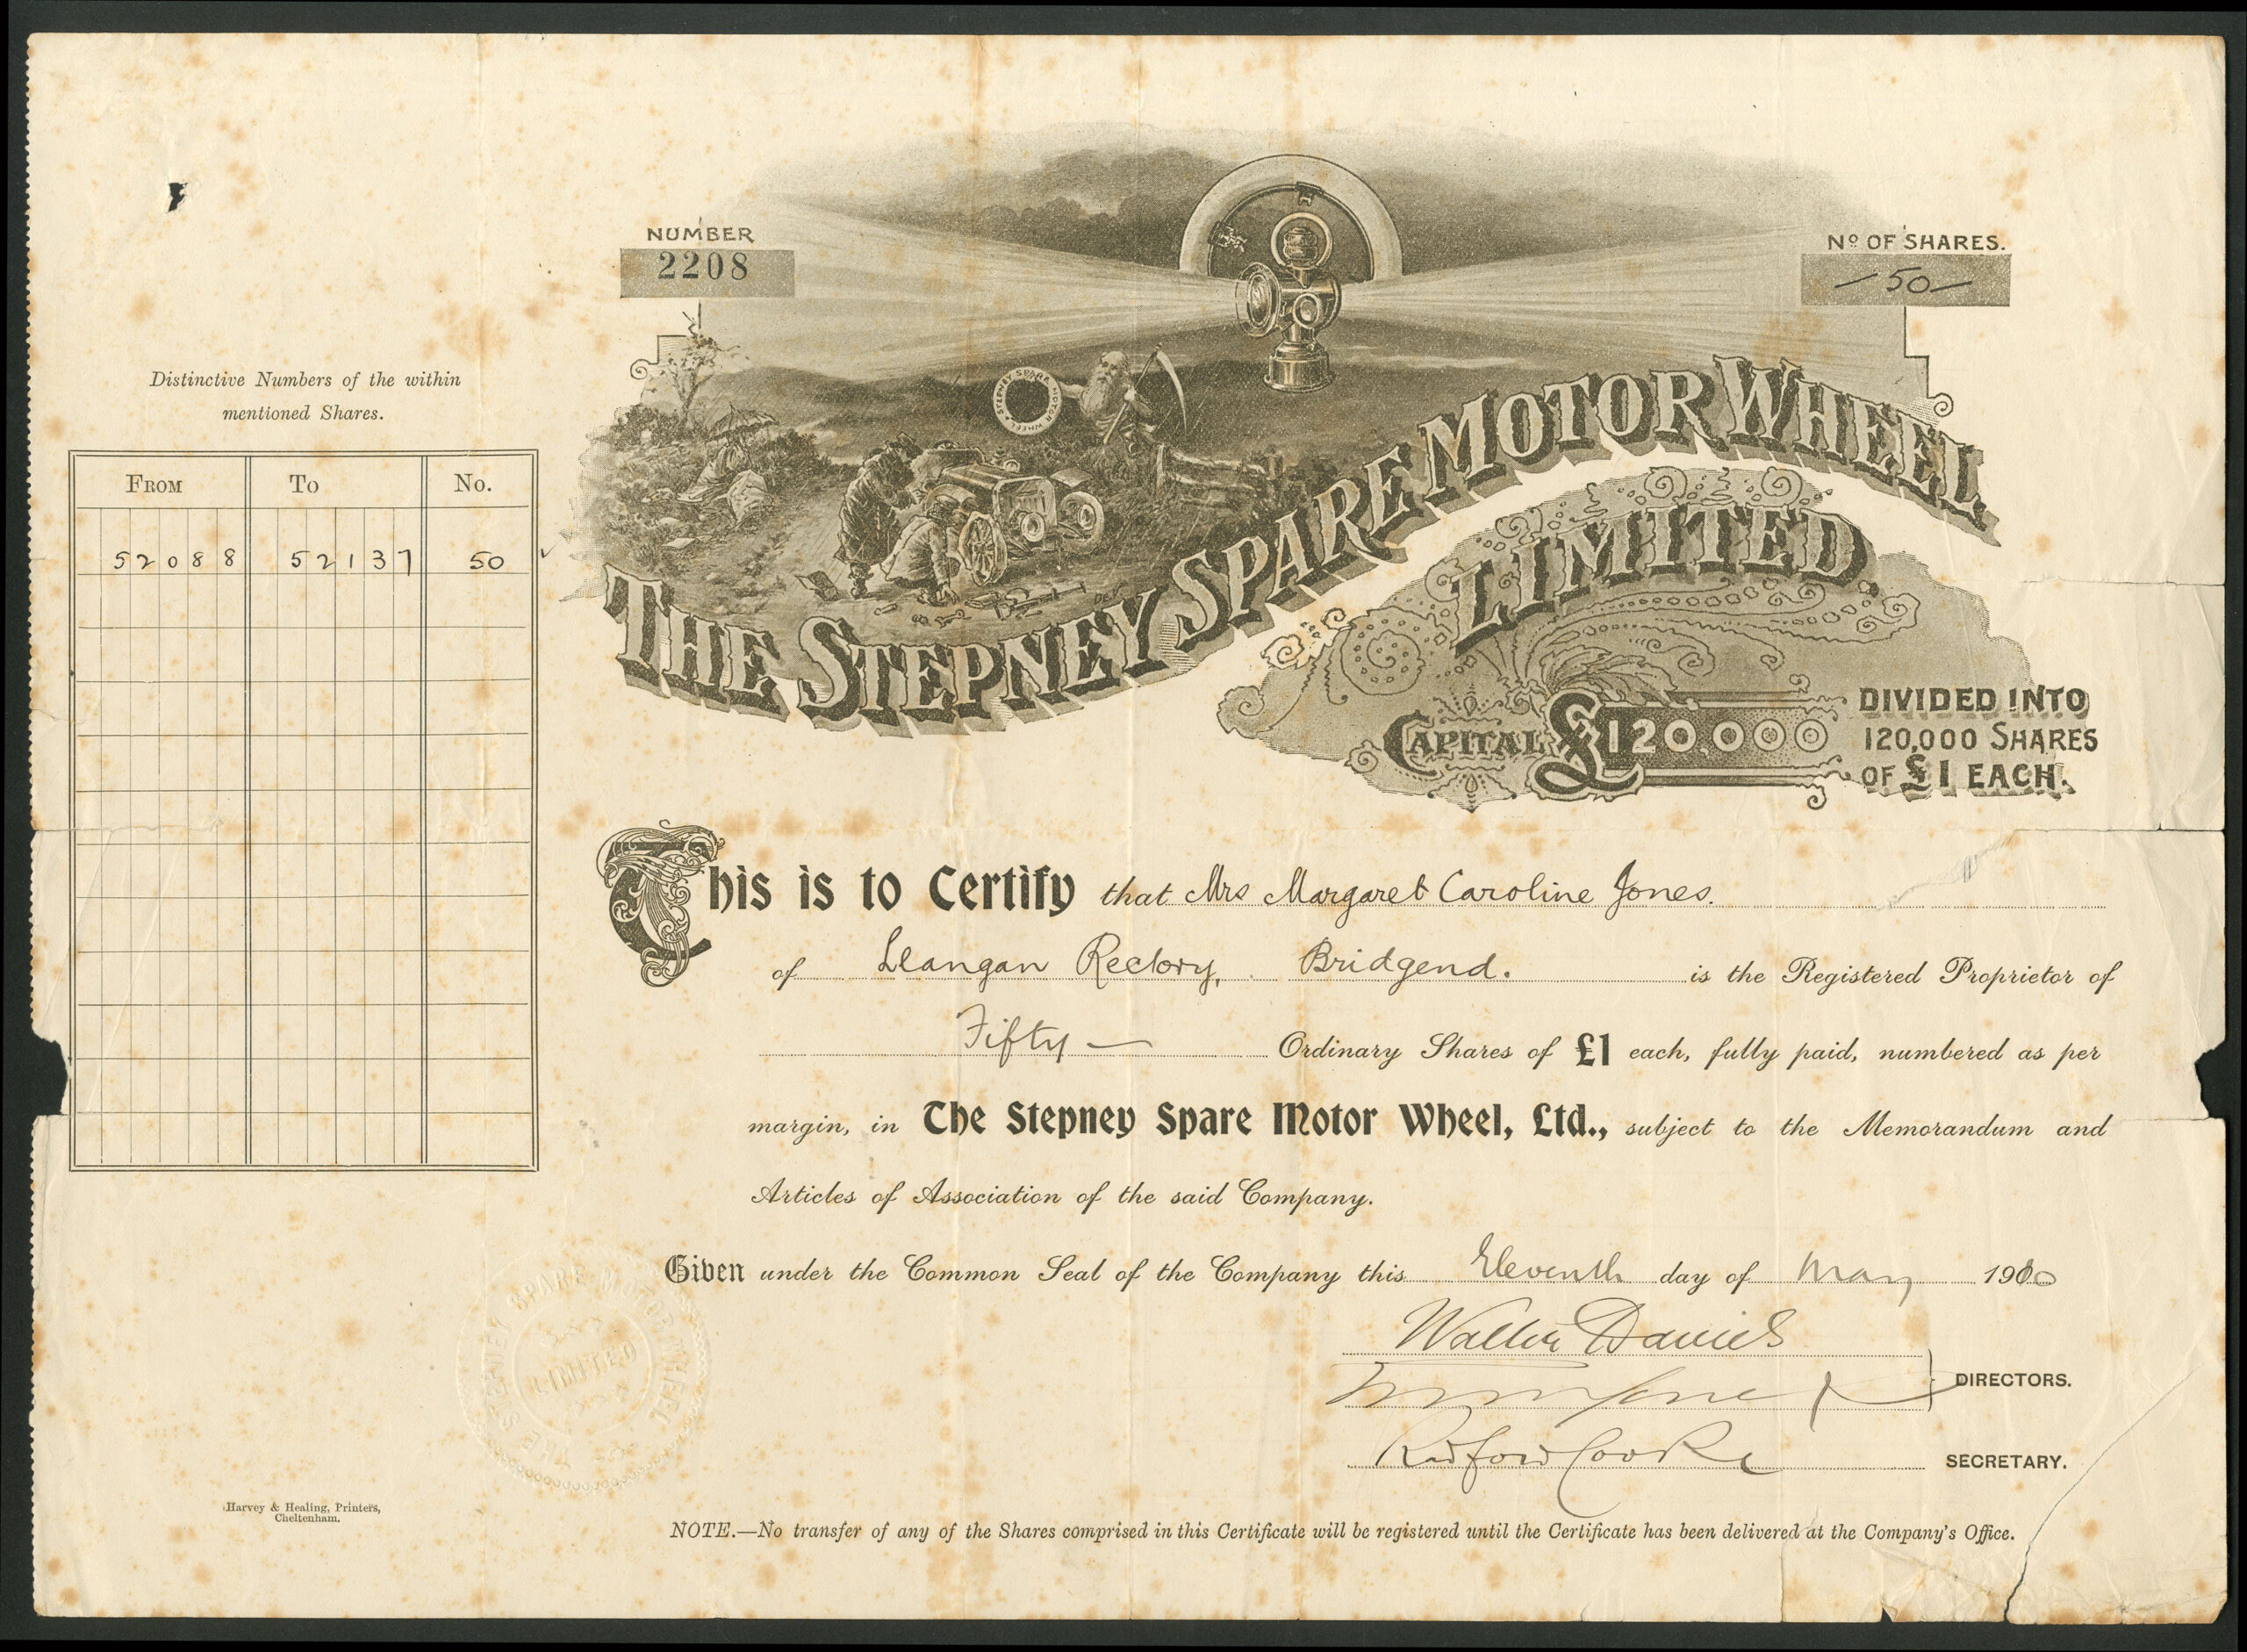 NUMBER
2208
Nº OF SHARES.
— 50 —
STEPNEY SPARE MOTOR WHEEL
THE STEPNEY SPARE MOTOR WHEEL
LIMITED.
CAPITAL £120,000
DIVIDED INTO
120,000 SHARES
OF £1 EACH.
Distinctive Numbers of the within
mentioned Shares.
FROM TO No.
52088 52137 50
This is to Certify that Mrs Margaret Caroline Jones.
of Llangan Rectory, Bridgend. is the Registered Proprietor of
Fifty — Ordinary Shares of £1 each, fully paid, numbered as per
margin, in The Stepney Spare Motor Wheel, Ltd., subject to the Memorandum and
Articles of Association of the said Company.
Given under the Common Seal of the Company this Eleventh day of May 1910
Walter Davies
DIRECTORS.
Redford Cooke
SECRETARY.
THE STEPNEY SPARE MOTOR WHEEL
LIMITED
Harvey & Healing, Printers,
Cheltenham.
NOTE.—No transfer of any of the Shares comprised in this Certificate will be registered until the Certificate has been delivered at the Company's Office.